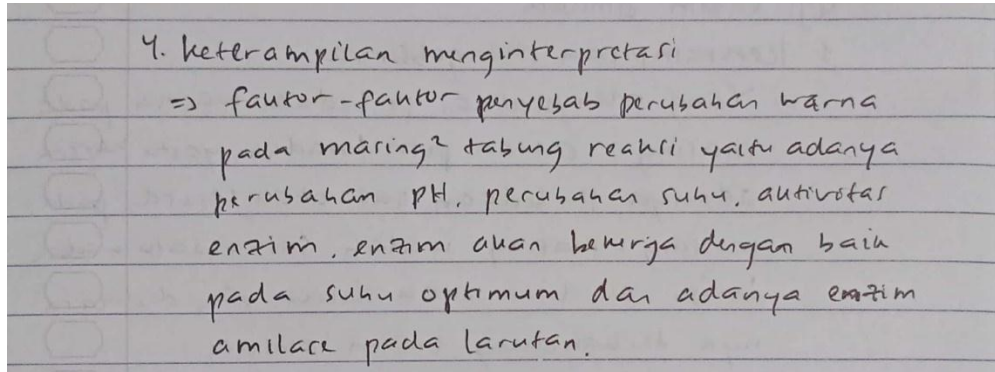 4. Keterampilan menginterpretasi
=> faktor-faktor penyebab perubahan warna
pada masing² tabung reaksi yaitu adanya
perubahan pH, perubahan suhu, aktivitas
enzim, enzim akan bekerja dengan baik
pada suhu optimum dan adanya enzim
amilase pada larutan.